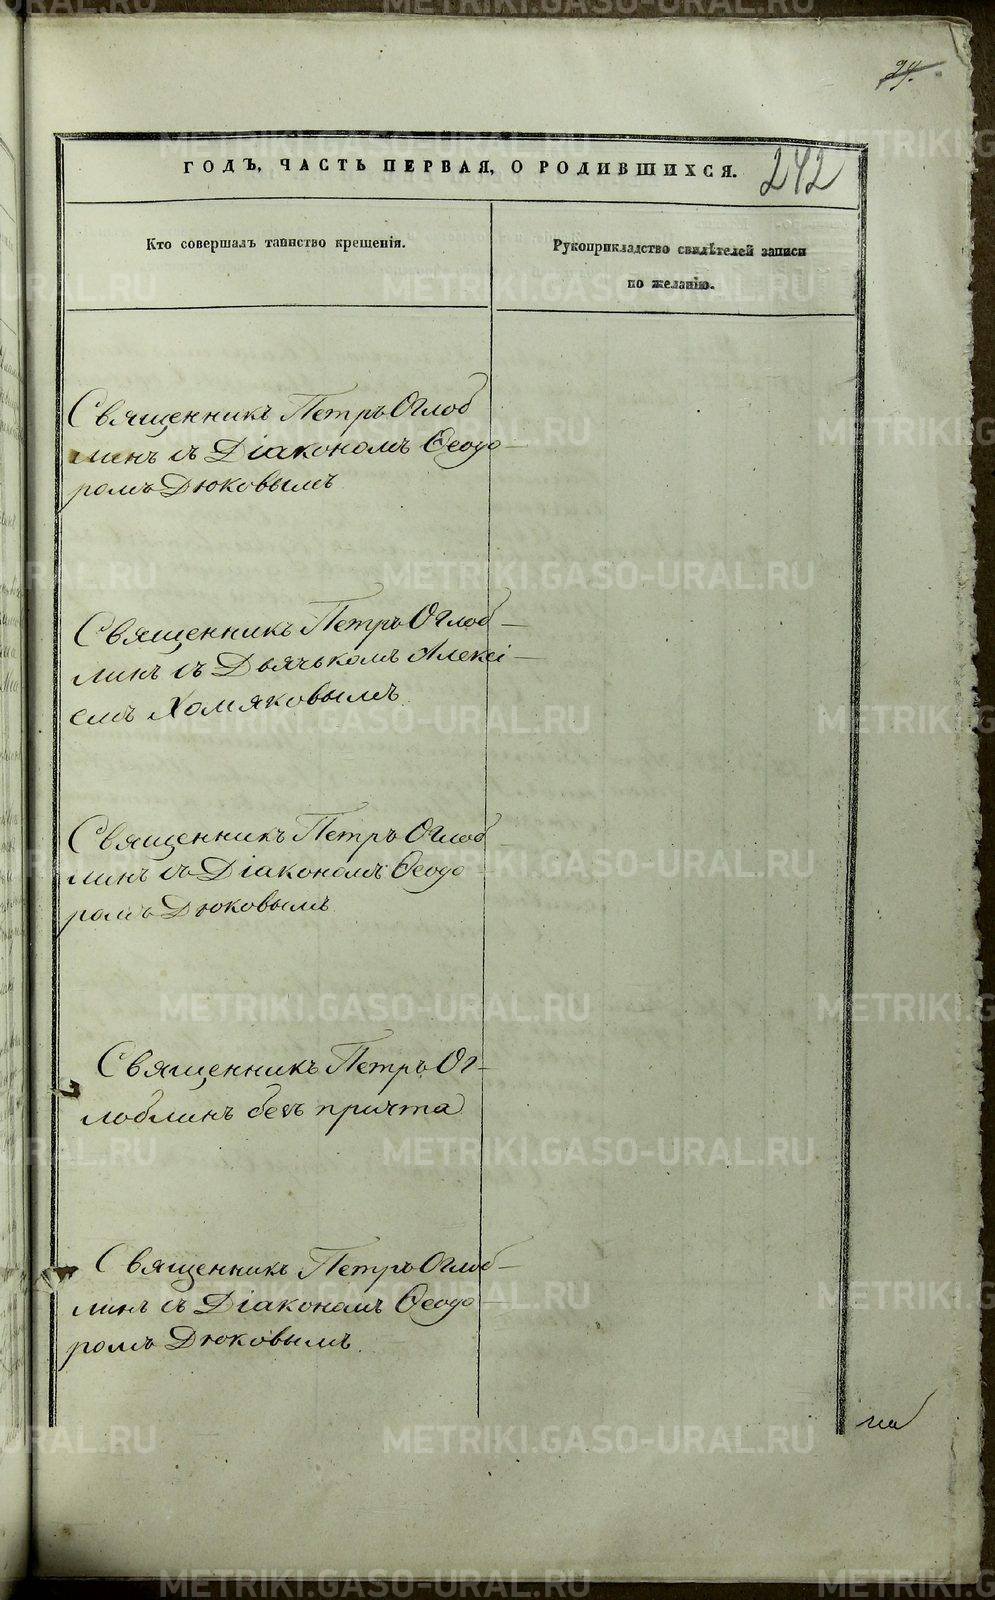 24.
ГОДЪ, ЧАСТЬ ПЕРВАЯ, О РОДИВШИХСЯ.
242
Кто совершалъ таинство крещенія.
Рукоприкладство свидѣтелей записи
по желанію.
Священникъ Петръ Оглоб
линъ съ Діакономъ Ѳеодо-
ромъ Дюковымъ
Священникъ Петръ Оглоб-
линъ съ Дьячькомъ Алексі-
емъ Хомяковымъ
Священникъ Петръ Оглоб
линъ съ Діакономъ Ѳеодо
ромъ Дюковымъ
Священникъ Петръ Ог-
лоблинъ безъ причта
Священникъ Петръ Оглоб-
линъ съ Діакономъ Ѳеодо
ромъ Дюковымъ.
METRIKI.GASO-URAL.RU